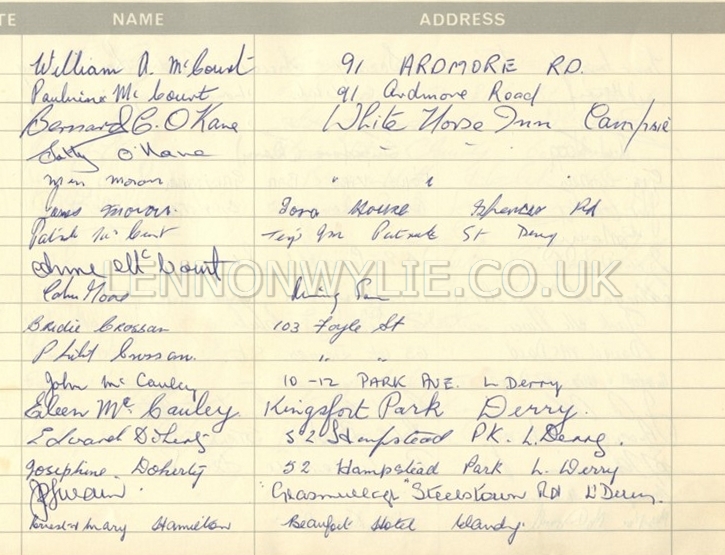 TE NAME ADDRESS
William A. McCourt 91 ARDMORE RD.
Paulnina Mc Court 91 Ardmore Road
Bernard G. O'Kane White Horse Inn Campsie
O'Kane " " "
Moran " " "
James Moran House Spencer Rd
Patrick McCourt Inn Patrick St Derry
Anne McCourt
LENNONWYLIE.CO.UK
Colm Moore
Bridie Crossan 103 Foyle St
Philip Crossan. " "
John McCauley 10-12 PARK AVE. L Derry
Eileen McCauley Kingsfort Park Derry.
Edward Doherty 52 Hampstead PK. L. Derry.
Josephine Doherty 52 Hampstead Park L. Derry
"Grasmillage" Steelstown Rd L'Derry.
Mary Hamilton Beaufort Hotel